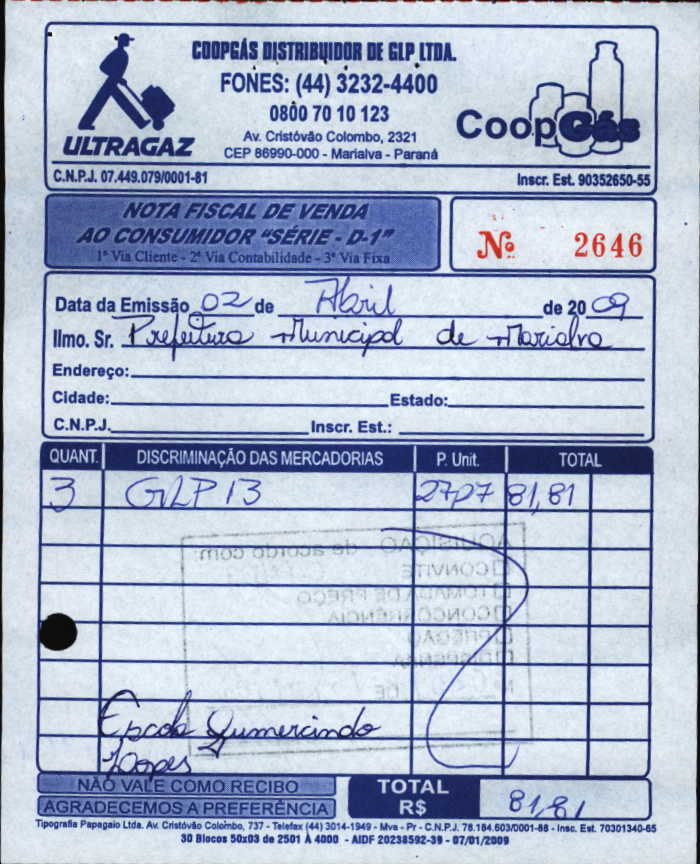 COOPGÁS DISTRIBUIDOR DE GLP LTDA.
FONES: (44) 3232-4400
0800 70 10 123
Av. Cristóvão Colombo, 2321
CEP 86990-000 - Marialva - Paraná
ULTRAGAZ
CoopGás
C.N.P.J. 07.449.079/0001-81
Inscr. Est. 90352650-55
NOTA FISCAL DE VENDA
AO CONSUMIDOR "SÉRIE - D-1"
1ª Via Cliente - 2ª Via Contabilidade - 3ª Via Fixa
Nº 2646
Data da Emissão 02 de Abril de 2009
Ilmo. Sr. Prefeitura Municipal de Marialva
Endereço:
Cidade: Estado:
C.N.P.J. Inscr. Est.:
QUANT. DISCRIMINAÇÃO DAS MERCADORIAS P. Unit. TOTAL
3 GLP 13 27,27 81,81
AQUISIÇÃO de acordo com:
CONVITE
TOMADA DE PREÇO
CONCORRÊNCIA
PREGÃO
DISPENSA
Nº DE
Escola Gumercindo
Lopes
NÃO VALE COMO RECIBO
AGRADECEMOS A PREFERÊNCIA
TOTAL
R$ 81,81
Tipografia Papagaio Ltda. Av. Cristóvão Colombo, 737 - Telefax (44) 3014-1949 - Mva - Pr - C.N.P.J. 78.184.603/0001-88 - Insc. Est. 70301340-65
30 Blocos 50x03 de 2501 À 4000 - AIDF 20238592-39 - 07/01/2009